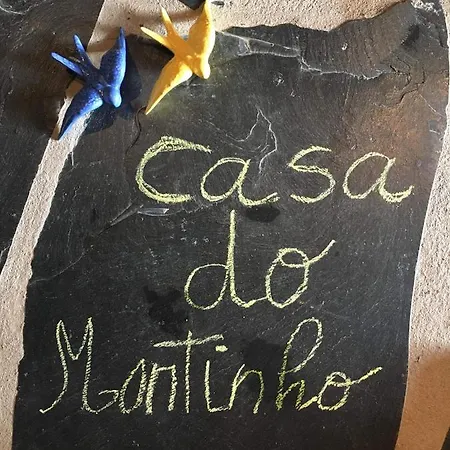 Casa
do
Martinho